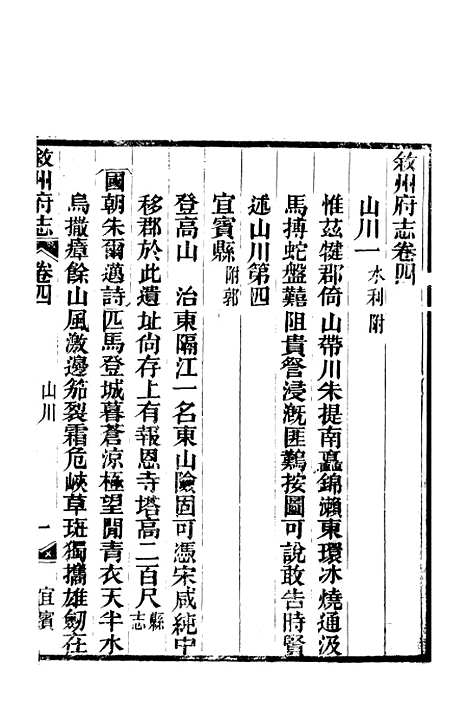 敘州府志卷四
山川一 水利附
惟茲犍郡倚山帶川朱提南矗錦瀨東環冰燒通汲
馬搏蛇盤巃阻貴詧浸溉匪鷄按圖可說敢告時賢
述山川第四
宜賓縣 附郭
登高山 治東隔江一名東山險固可憑宋咸純中
移郡於此遺址尙存上有報恩寺塔高二百尺 縣志
國朝朱爾邁詩匹馬登城暮蒼涼極望閒青衣天半水
烏撒瘴餘山風激邊笳裂霜危峽草斑獨攜雄劒在
敘州府志 卷四 山川 一 宜賓